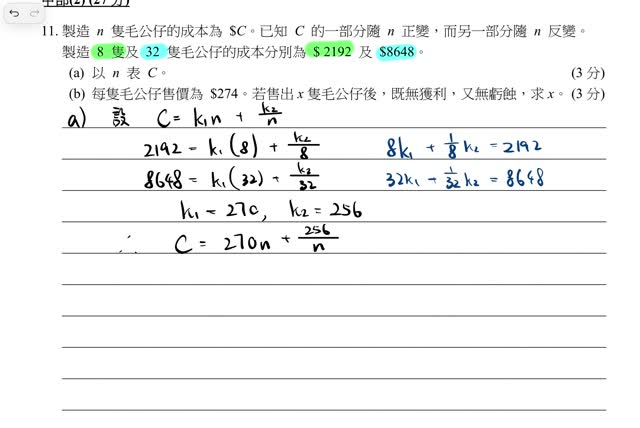 11. 製造 n 隻毛公仔的成本為 $C。已知 C 的一部分隨 n 正變,而另一部分隨 n 反變。
製造 8 隻及 32 隻毛公仔的成本分別為 $2192 及 $8648。
(a) 以 n 表 C。 (3 分)
(b) 每隻毛公仔售價為 $274。若售出 x 隻毛公仔後,既無獲利,又無虧蝕,求 x。 (3 分)
a) 設 C = k₁n + k₂/n
2192 = k₁(8) + k₂/8 8k₁ + 1/8 k₂ = 2192
8648 = k₁(32) + k₂/32 32k₁ + 1/32 k₂ = 8648
k₁ = 270, k₂ = 256
∴ C = 270n + 256/n